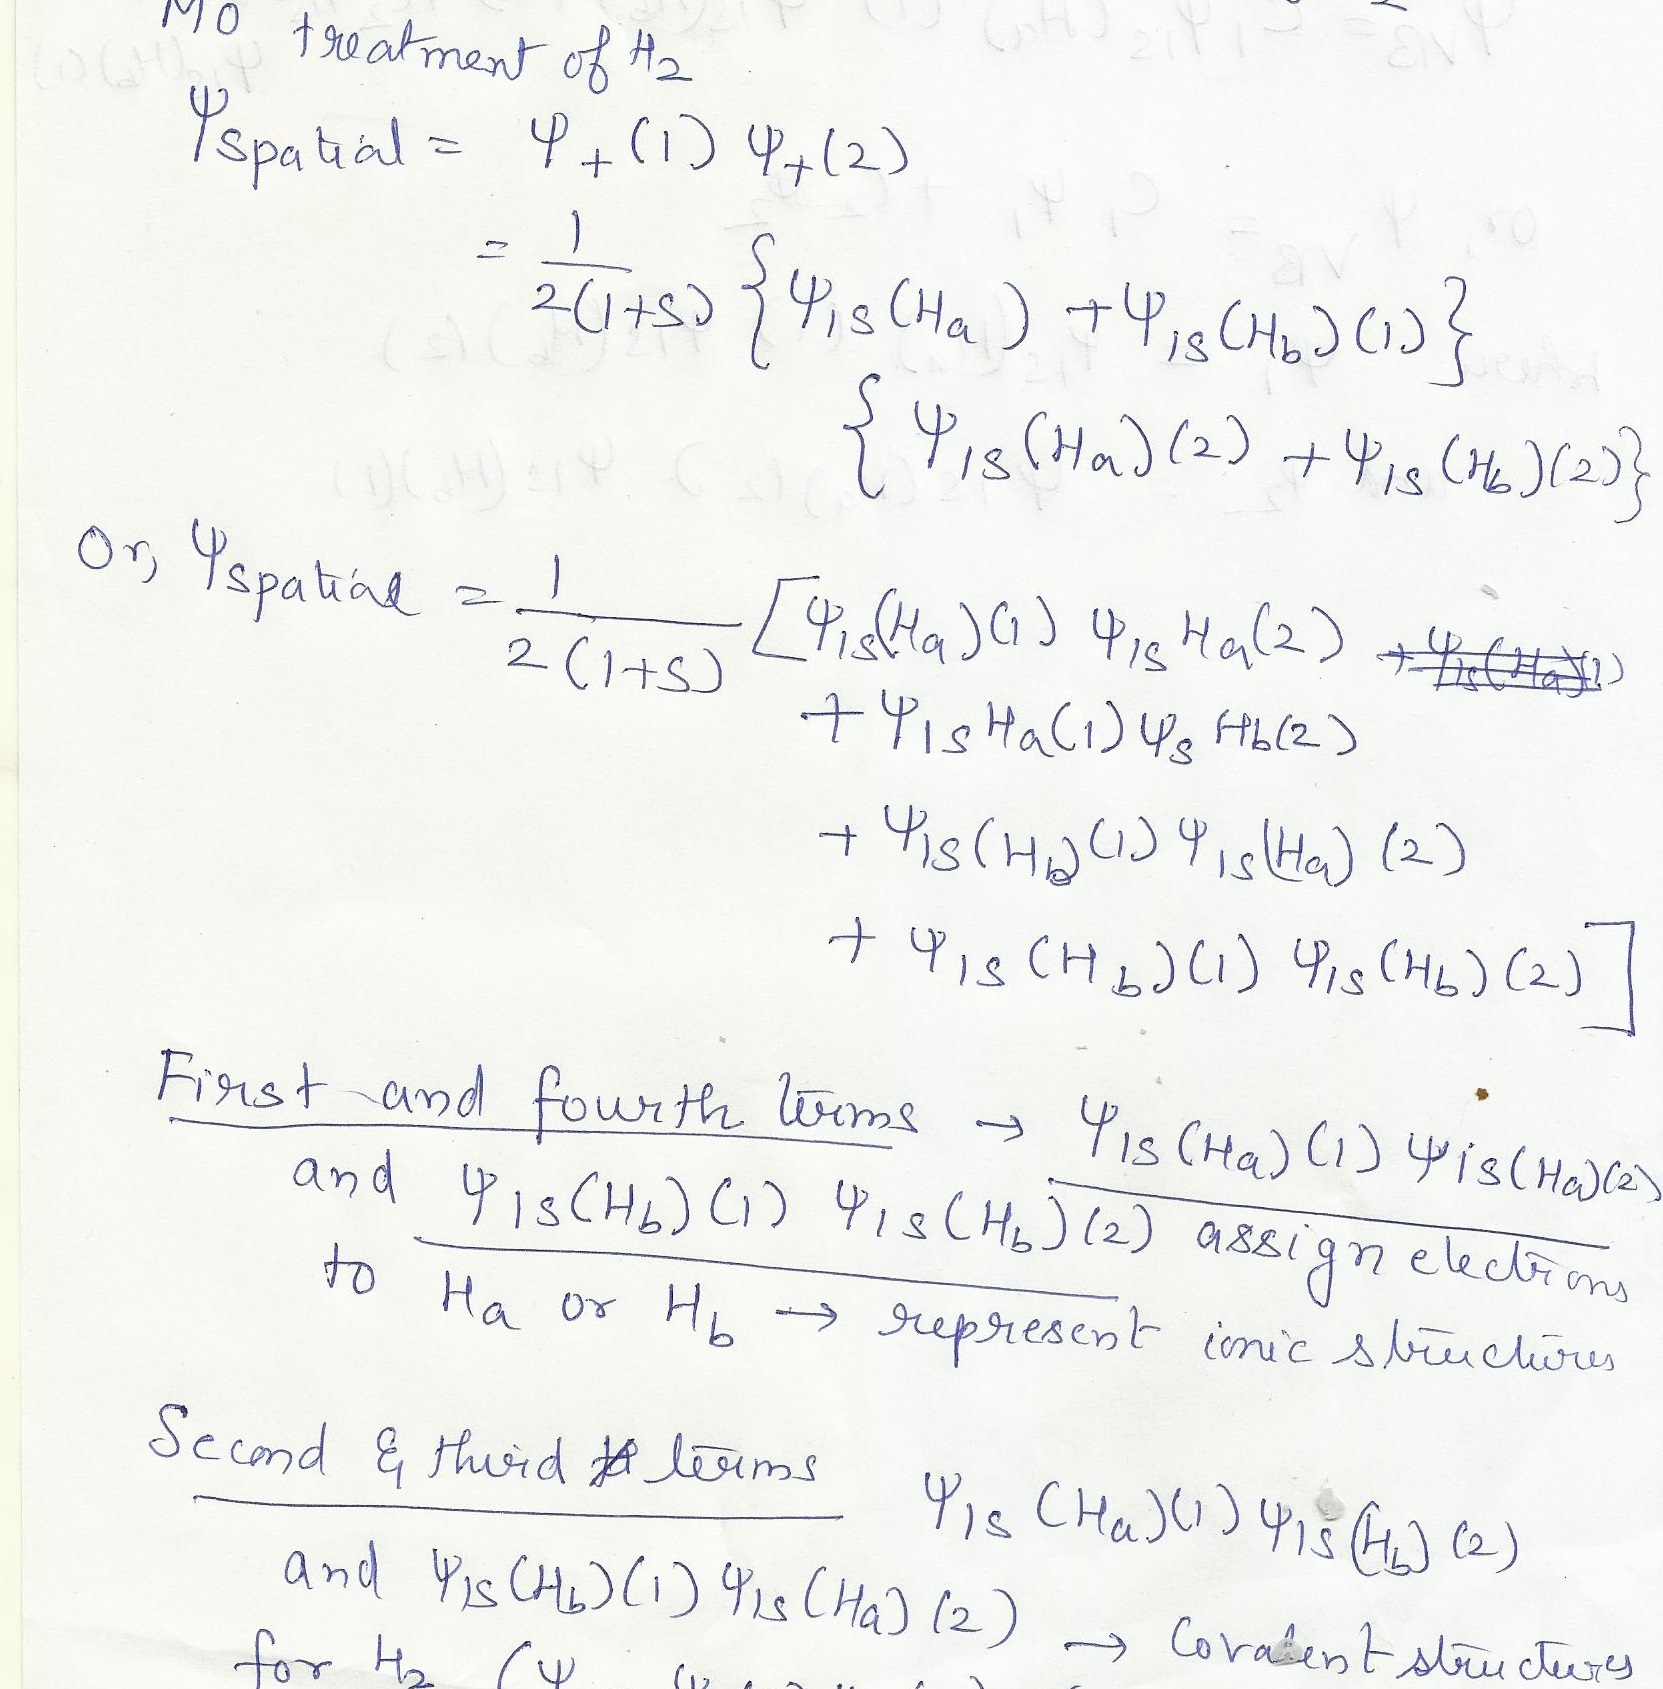 MO treatment of H2
Ψspatial = Ψ+(1) Ψ+(2)
= 1/2(1+S) {Ψ1s(Ha) + Ψ1s(Hb)(1)}
{Ψ1s(Ha)(2) + Ψ1s(Hb)(2)}
Or, Ψspatial = 1/2(1+S) [Ψ1s(Ha)(1) Ψ1s Ha(2) + Ψ1s(Ha)(1)
+ Ψ1s Ha(1) Ψs Hb(2)
+ Ψ1s(Hb)(1) Ψ1s(Ha)(2)
+ Ψ1s(Hb)(1) Ψ1s(Hb)(2)]
First and fourth terms → Ψ1s(Ha)(1) Ψ1s(Ha)(2)
and Ψ1s(Hb)(1) Ψ1s(Hb)(2) assign electrons
to Ha or Hb → represent ionic structures
Second & third terms Ψ1s(Ha)(1) Ψ1s(Hb)(2)
and Ψ1s(Hb)(1) Ψ1s(Ha)(2) → Covalent structures
for H2 (Ψ